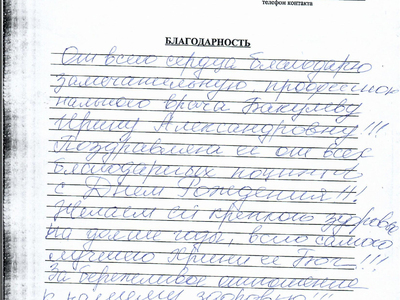 телефон контакта
БЛАГОДАРНОСТЬ
От всего сердца благодарю
замечательную професссио
нального врача Бакулеву
Ирину Александровну!!!
Поздравляем ее от всех
благодарных пациентов
с Днем Рождения!!!
Желаем ей крепкого здоровья
на долгие годы, всего самого
лучшего Храни ее Бог!!!
За бережливое отношение
к нашему здоровью!!